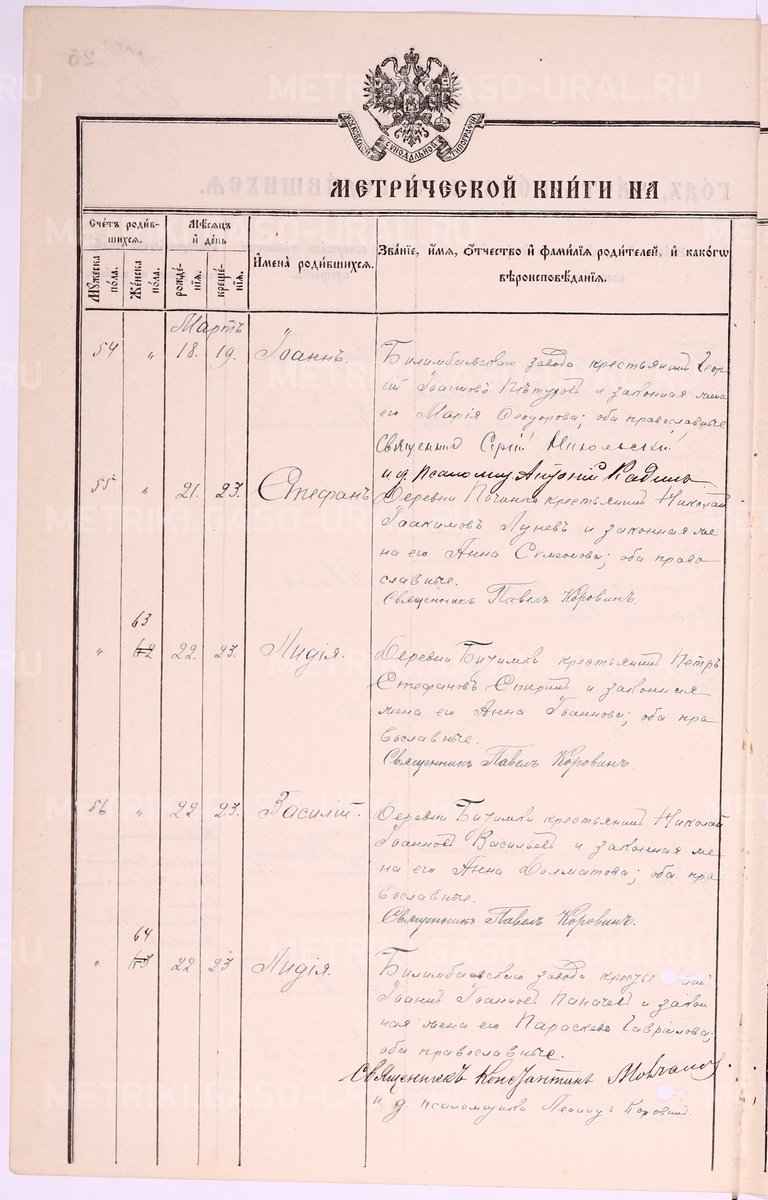 МОСКОВСКОЙ СѴНОДАЛЬНОЙ ТИПОГРАФІИ
МЕТРИ́ЧЕСКОЙ КНИ́ГИ НА
Сче́тъ роди́в-
шихся.
Му́жеска
по́ла.
Же́нска
по́ла.
Мѣ́сяцъ
и҆ де́нь
рожде-
нїѧ.
креще́-
нїѧ.
И҆мена̀ роди́вшихсѧ.
Зва́нїе, и҆́мѧ, ѻ҆́тчество и҆ фами́лїѧ роди́телей, и҆ како́гѡ
вѣроисповѣ́данїѧ.
Мартъ
54 " 18. 19. Іоаннъ.
Билимбаевскаго завода крестьянинъ Геор
гій Іоанновъ Пѣтуховъ и законная жена
его Марія Ѳеодорова; оба православные
Священник Сергій Никольскій
и д. псаломщ Антоній
55 " 21. 23. Стефанъ
Деревни Починка крестьянинъ Николай
Іоакимовъ Луневъ и законная же
на его Анна Сѵмеонова; оба право
славные.
Священникъ Павелъ Коровинъ.
63
" 62 22. 23. Лидія.
Деревни Битимки крестьянинъ Петръ
Стефановъ и законная
жена его Анна Іоаннова; оба пра
вославные.
Священникъ Павелъ Коровинъ.
56 " 22 23. Василій.
Деревни Битимки крестьянинъ Николай
Іоанновъ Васильевъ и законная же
на его Анна Долматова; оба пра
вославные.
Священникъ Павелъ Коровинъ.
64
" 63 22 23 Лидія.
Билимбаевскаго завода крестьянинъ
Іоаннъ Іоанновъ Паначевъ и закон
ная жена его Параскева Гаврилова;
оба православные.
Священникъ Константинъ
и. д. псаломщика Леонид Коровинъ.
METRIKI.GASO-URAL.RU